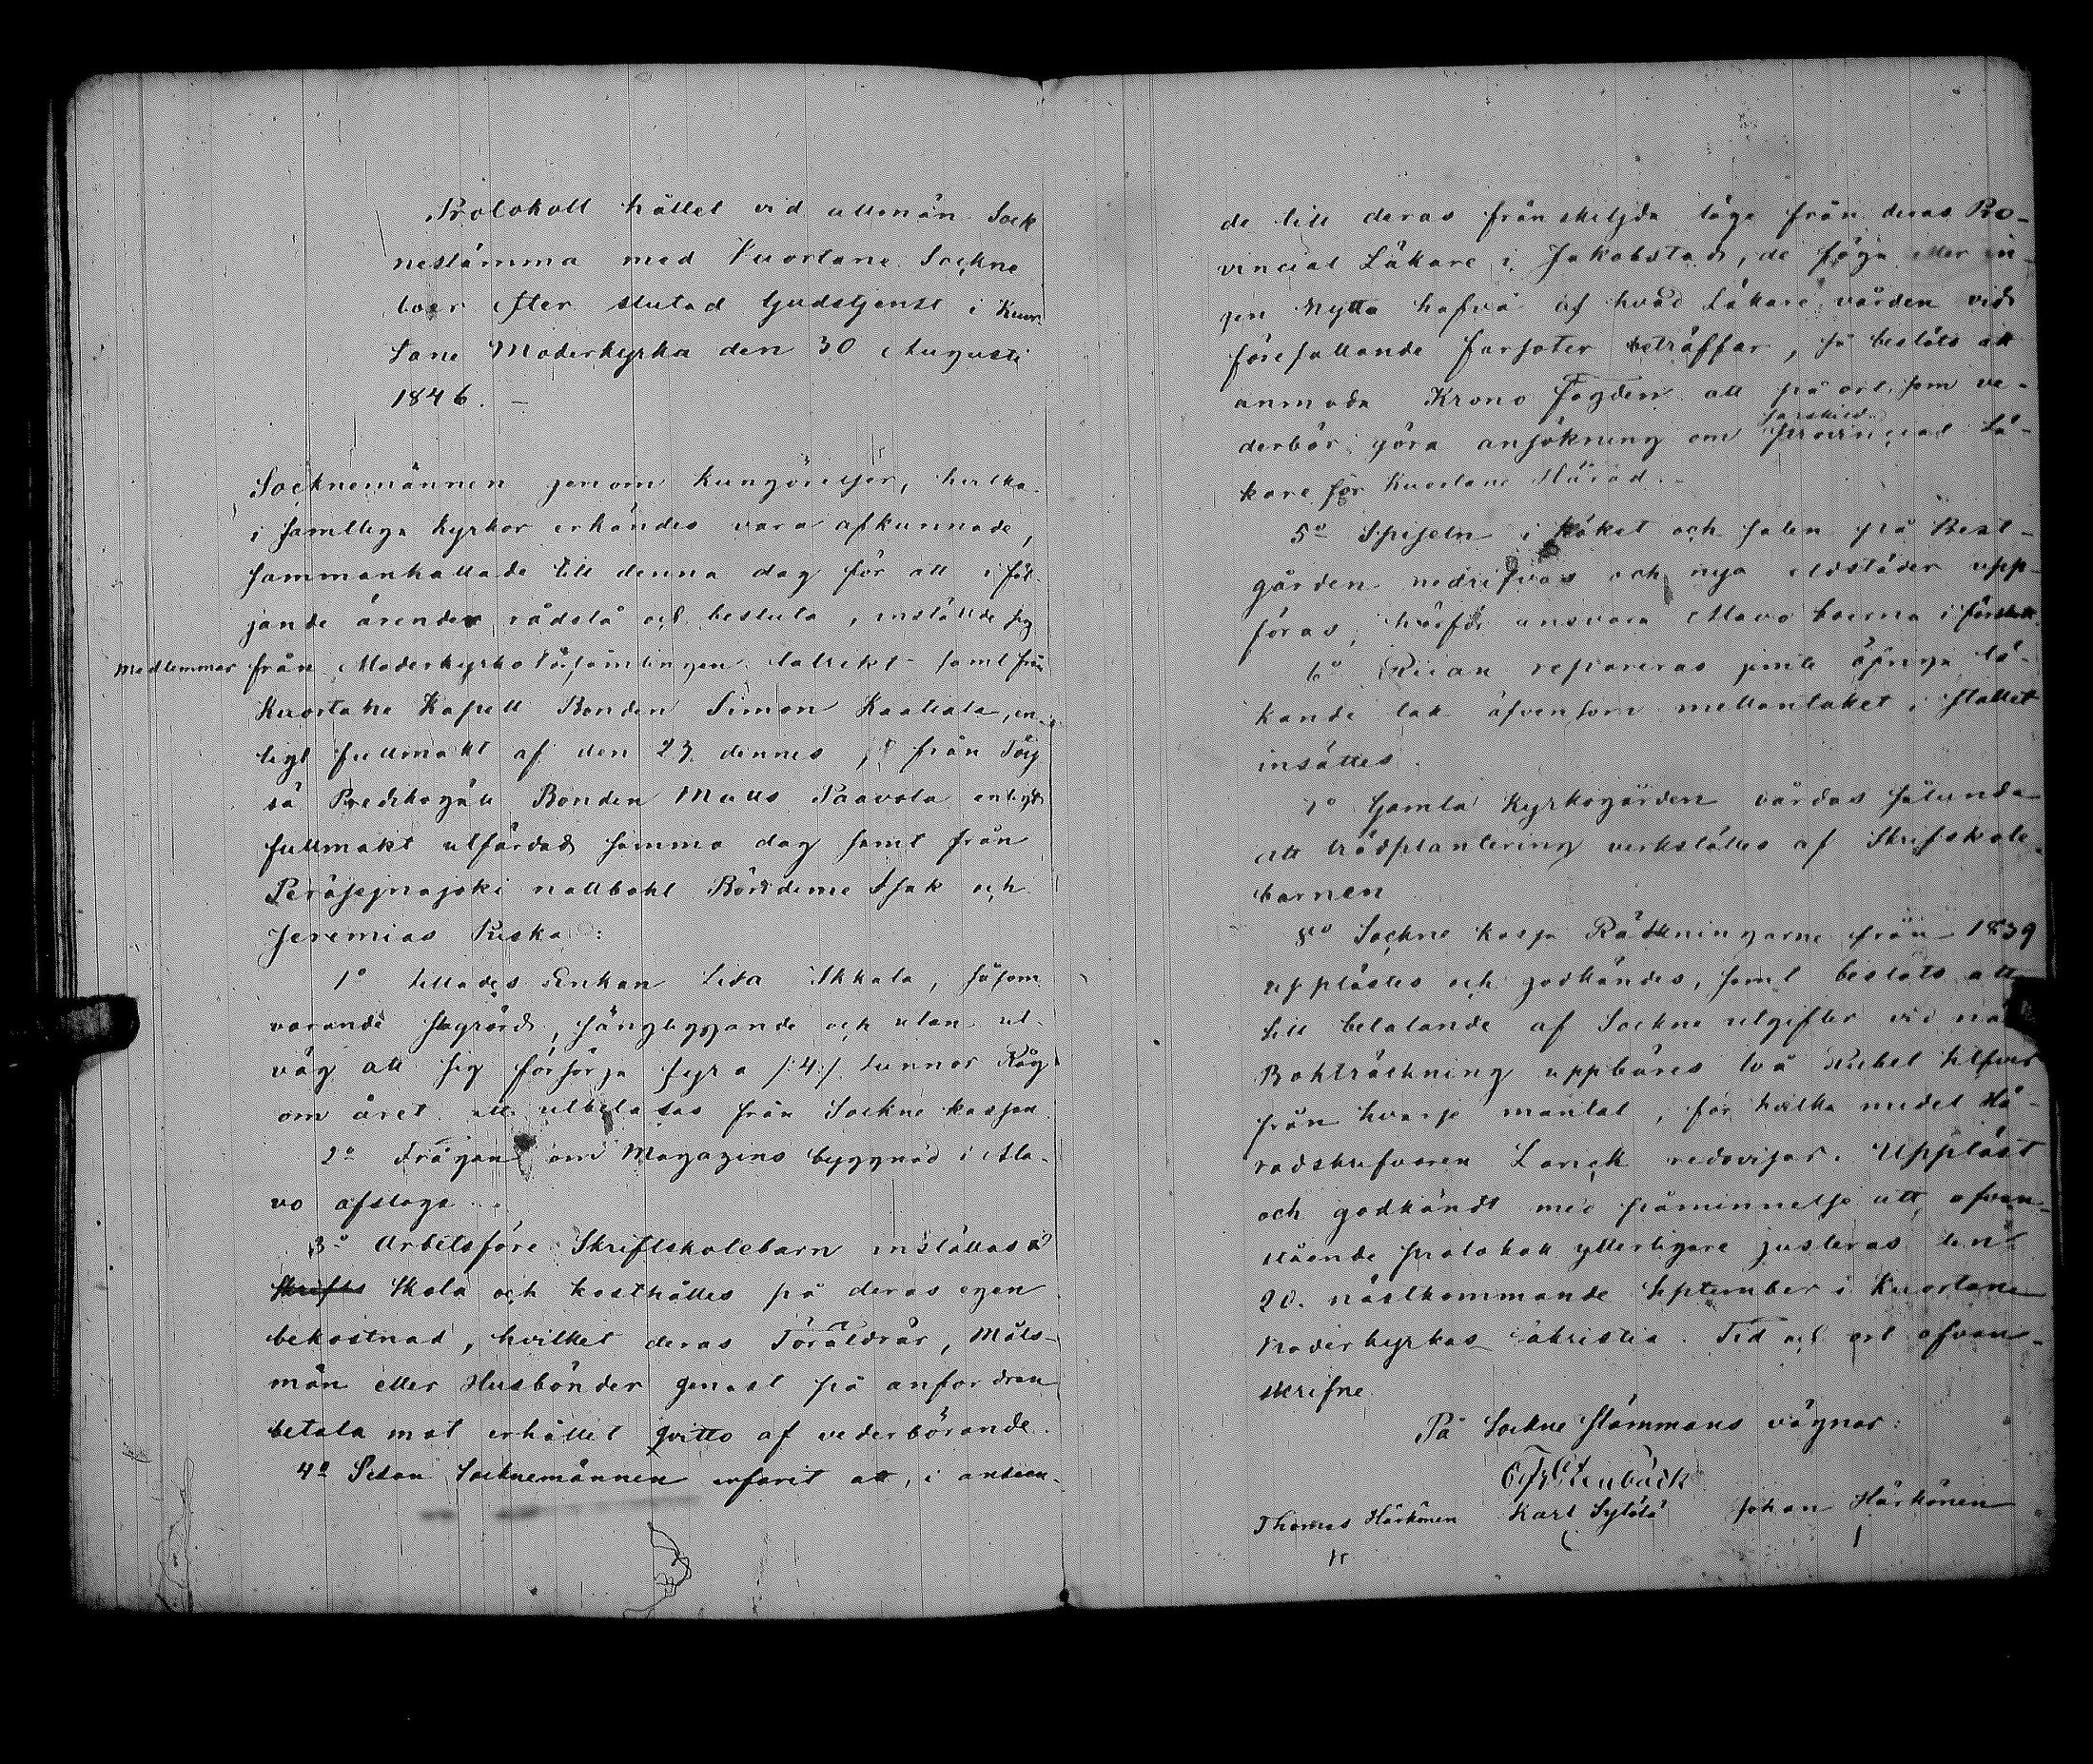 Protokoll hållet vid allmän Sock
nestämma med Kuortane Sockne
boer efter slutad Gudstjenst i Kuor
tane Moderkyrka den 30 Augusti
1846. –
Socknemännen genom Kungörelser, hvilka
i samtliga Kyrkor erkändes vara afkunnade,
sammankallade till denna dag för att i föl-
jande ärender rådslå och besluta, inställde sig
Medlemmar från Moderkyrko Församlingen talrikt samt från
Kuortane Kapell Bonden Simon Kaatiala, en-
ligt fullmakt af den 23 dennes, från Töy
sä Predikogäll Bonden Matts Paavola enligt
fullmakt utfärdad samma dag samt från
Peräsejnäjoki Bönderne Isak och
Jeremias Puska:
1o tillades Enkan Lisa Ikkala, såsom
varande sängliggande och utan ut-
väg att sig försörja fyra /:4:/ tunnor Råg
om året att utbetalas från Sockne kassan.
2o Frågan om Magazins byggnad i Ala-
vo afslogs.
3o Arbetsföre Skriftskolebarn inställas i
Skrifts Skola och kosthålles på deras egen
bekostnad, hvilket deras Föräldrar, Måls-
män eller Husbönder genast på anfordran
betala mot erhållet qvitto af vederbörande.
4o Sedan Socknemännen erfarit att, i anseen-
de till deras frånskiljda läge från deras Pro-
vincial Läkare i Jakobstad, de föga eller in-
gen Nytta hafva af hvad Läkare vården vid
förefallande farsoter beträffar, så beslöts att
anmoda Krono Fogden att på ort som ve-
derbör göra ansökning om särskild Provincial Lä-
kare för Kuortane Härad. –
5o Spiseln i köket och salen på Best-
gården nedrifvas och nya eldstäder upp-
föras, hvarför ansvara Alavo boerna i
6o Riian repareras jemte öfriga lä-
kande tak äfvensom mellantaket i stallet
insättes.
7o Gamla Kyrkogården vårdas sålunda
att trädplantering verkställes af Skriftskole-
barnen
8o Sockne kassa Räkningarne från 1839
upplästes och godkändes, samt beslöts att
till betalande af Sockne utgifter vid
Bokträkning uppbäres två Rubel silfver
från hvarje mantal, för hvilka medel Hä-
radsskrifvaren Lanck redovisar. Uppläst
och godkändt med påminnelse att ofvan-
stående protokoll ytterligare justeras den
20. nästkommande September i Kuortane
Moderkyrkas sakristia. Tid och ort ofvan-
skrifne
På Sockne Stämmans vägnar:
Stenbäck
Thomas Härkönen Karl Sylölä Johan Härkönen